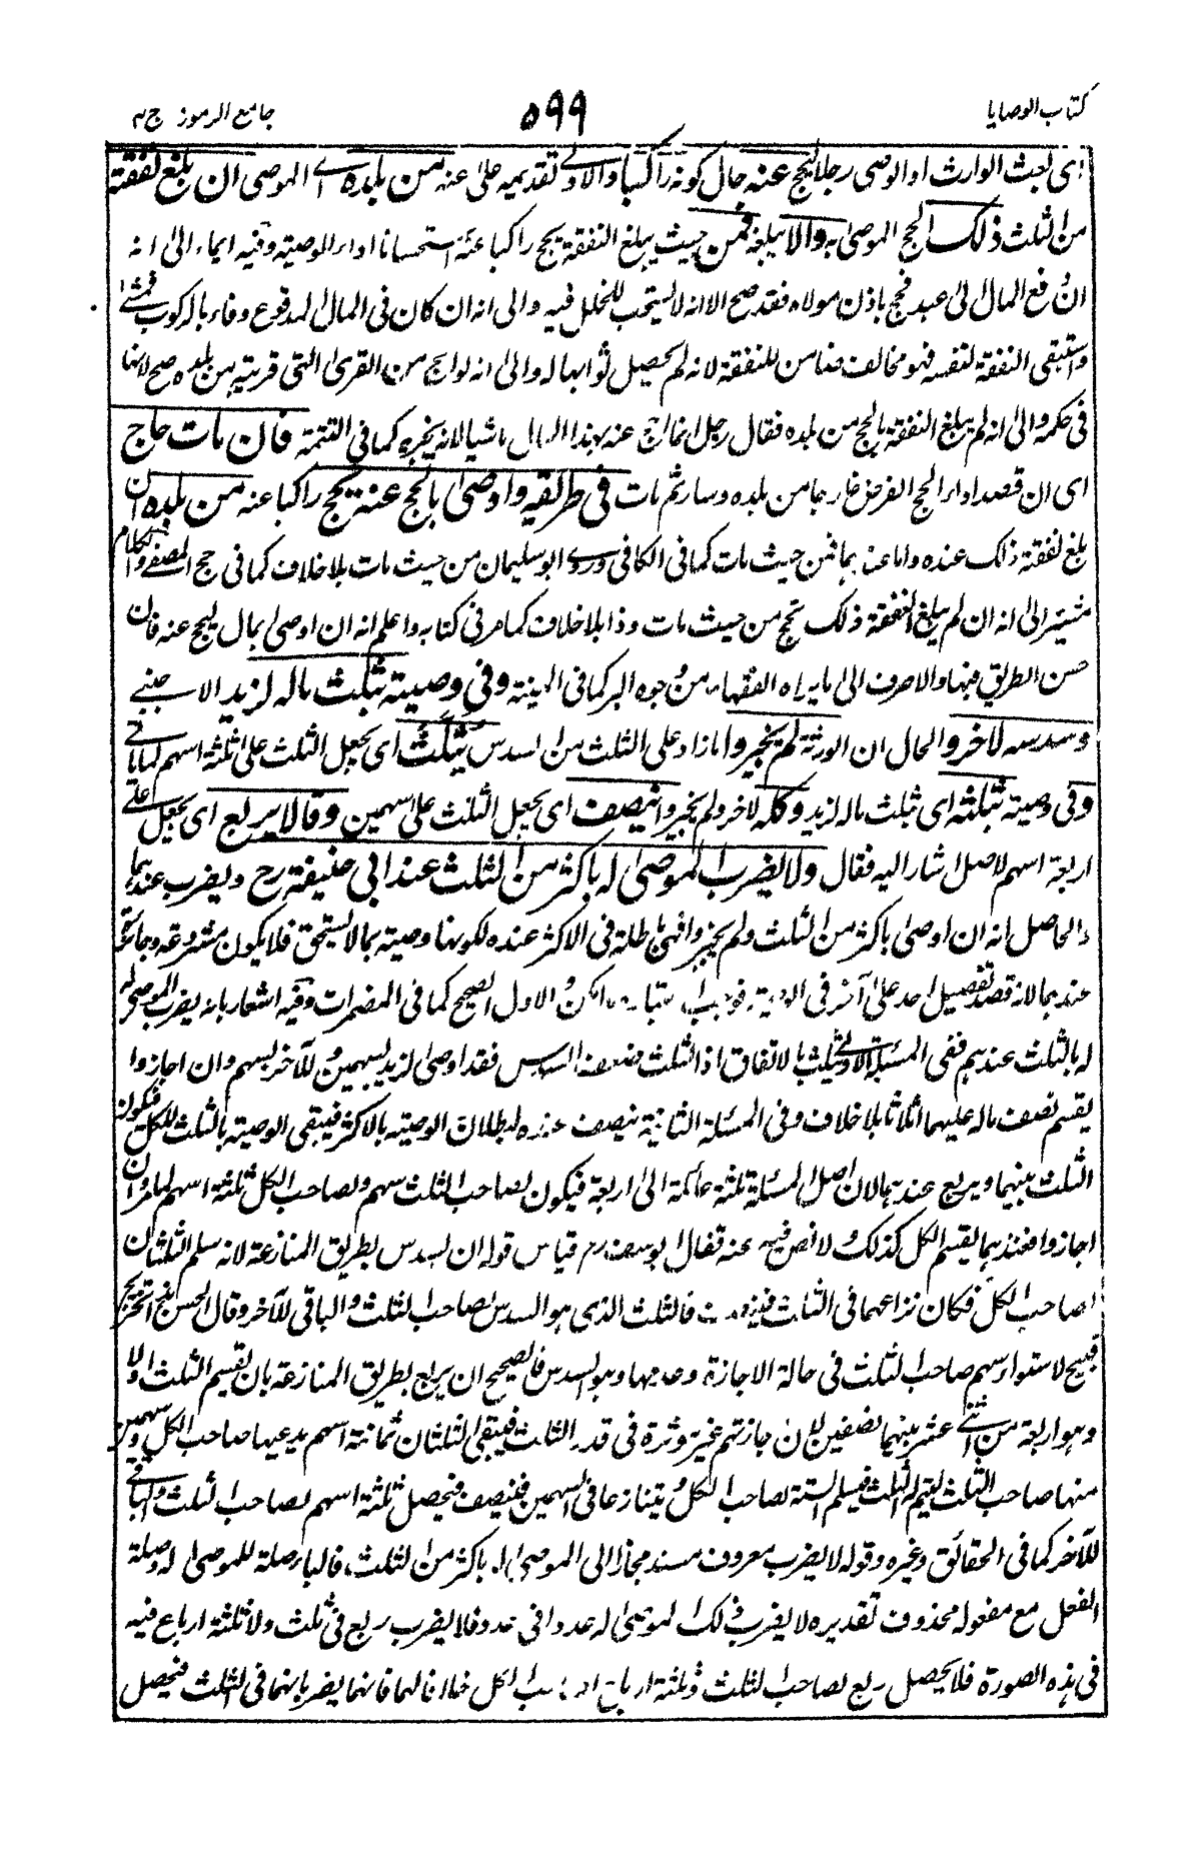 كتاب الوصايا
٥٩٩
جامع الرموز ج ٢
اى بعث الوارث او الوصى رجلا ليحج عنه حال كونه راكبا والاولى تقديمه على عنه من بلده اى الموصى ان بلغ نفقته
من الثلث ذلك الحج الموصى به والا يبلغه فمن حيث يبلغ النفقة يحج راكبا عنه استحسانا اداء للوصية وفيه ايماء الى انه
ان دفع المال الى عبد فحج باذن مولاه فقد صح الا انه لا يستحب للخلل فيه والى انه ان كان فى المال المدفوع وفاء بالركوب فمشى
واستبقى النفقة لنفسه فهو مخالف ضامن للنفقة لانه لم يحصل ثوابها له والى انه لو احج من القرى التى قريبة من بلده صح لانها
فى حكمه والى انه لم يبلغ النفقة بالحج من بلده فقال رجل انما احج عنه بهذا المال ماشيا لانه يجزيه كما فى التتمة فان مات حاج
اى ان قصد اداء الحج الفرض خارجا من بلده وسار ثم مات فى طريقه واوصى بالحج عنه يحج راكبا عنه من بلده ان
بلغ نفقته ذلك عنده واما عندهما فمن حيث مات كما فى الكافى وروى ابو سليمان من حيث مات بلا خلاف كما فى حج المصفى والكلام
مشير الى انه ان لم يبلغ النفقة ذلك تحج من حيث مات وذا بلا خلاف كما مر فى كتابه واعلم انه ان اوصى بمال ليحج عنه فان
حسن الطريق فبها والا صرف الى ما يراه الفقهاء من وجوه البر كما فى المنية وفى وصيته بثلث ماله لزيد الاجنبى
وسدسه لآخر والحال ان الورثة لم يجيزوا ما زاد على الثلث من السدس يثلث اى يجعل الثلث على ثلثة اسهم لما ياتى
وفى وصيته بثلثه اى ثلث ماله لزيد وكله لآخر ولم يجيزوا ينصف اى يجعل الثلث على سهمين وقالا يربع اى يجعل على
اربعة اسهم لاصل اشار اليه فقال ولا يضرب الموصى له باكثر من الثلث عند ابى حنيفة رح ويضرب عندهما
والحاصل انه ان اوصى باكثر من الثلث ولم يجيزوا فهى باطلة فى الاكثر عنده لكونها وصية بما لا يستحق فلا يكون مشروعة وجائزة
عندهما لانه قصد تفضيل احد على آخر فى الوصية الاول الصحيح كما فى المضمرات وفيه اشعار بانه يضرب الموصى له
له بالثلث عندهم ففى المسئلة الاولى يثلث بالاتفاق اذ الثلث ضعف السدس فقد اوصى لزيد بسهمين وللآخر بسهم وان اجازوا
يقسم نصف ماله عليهما اثلاثا بلا خلاف وفى المسئلة الثانية ينصف عنده لبطلان الوصية بالاكثر فيبقى الوصية بالثلث للكل فيكون
الثلث بينهما ويربع عندهما لان اصل المسئلة ثلثة عائلة الى اربعة فيكون لصاحب الثلث سهم ولصاحب الكل ثلثة اسهم لما مر وان
اجازوا فعندهما يقسم الكل كذلك ولا نص فيه عنه فقال ابو يوسف رح قياس قوله ان يسدس بطريق المنازعة لانه سلم الثلثان
لصاحب الكل فكان نزاعهما فى الثلث فينصف فالثلث الذى هو السدس لصاحب الثلث والباقى للآخر وقال الحسن هذا التخريج
قبيح لاستواء سهم صاحب الثلث فى حالة الاجازة وعدمها وهو السدس فالصحيح ان يربع بطريق المنازعة بان يقسم الثلث اولا
وهو اربعة من اثنى عشر بينهما نصفين لان اجازتهم غير مؤثرة فى قدر الثلث فيبقى الثلثان ثمانية اسهم يدعيها صاحب الكل وسهمين
منها صاحب الثلث ليتم له الثلث فيسلم الستة لصاحب الكل ويتنازعا فى السهمين فينصف فيحصل ثلثة اسهم لصاحب الثلث والباقى
للآخر كما فى الحقائق وغيره وقوله لا يضرب معروف مسند مجازا الى الموصى له باكثر من الثلث فالباء صلة للموصى له وصلة
الفعل مع مفعوله محذوف تقديره لا يضرب ذلك الموصى له عددا فى عدد فلا يضرب ربع فى ثلث ولا ثلثة ارباع فيه
فى هذه الصورة فلا يحصل ربع لصاحب الثلث وثلثة ارباع لصاحب الكل خلافا لهما فانهما يضربانهما فى الثلث فيحصل